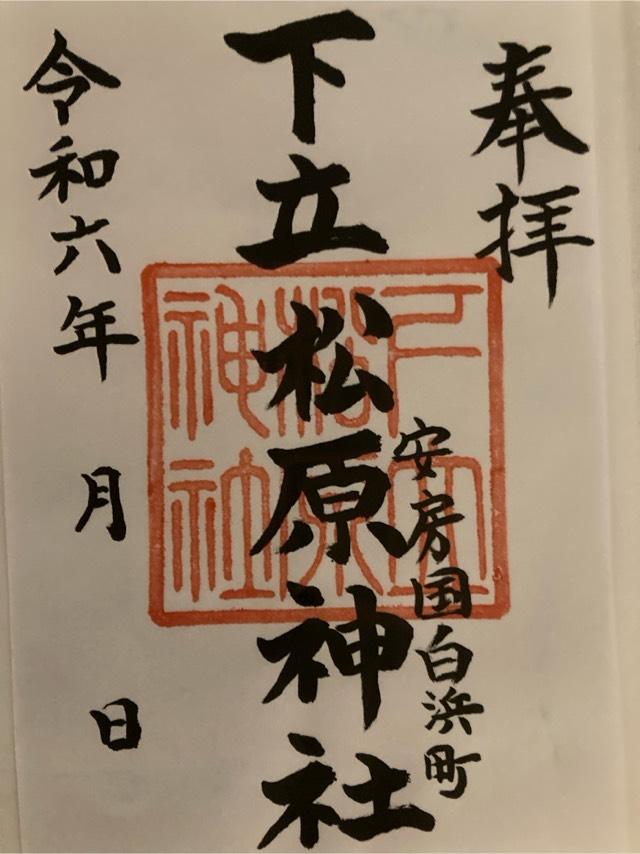 奉拝
安房国白浜町
下立松原神社
下立
松原
神社
令和六年 月 日